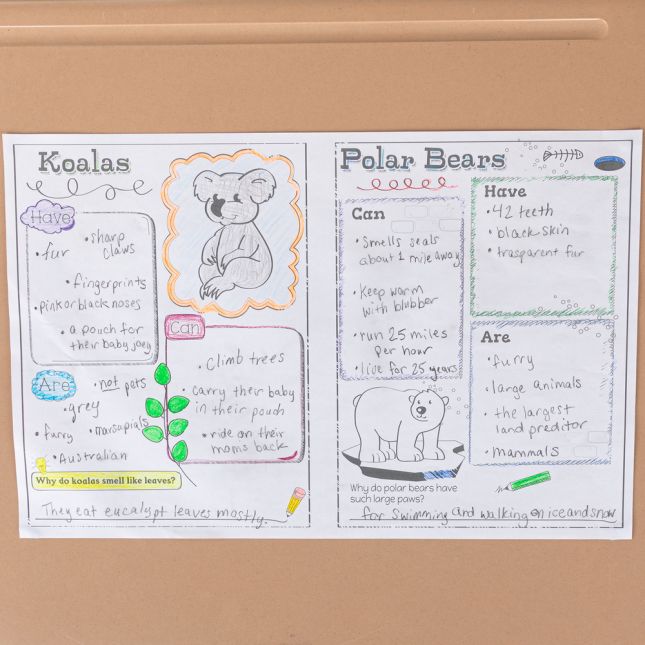 Koalas
Have
• fur
• sharp
claws
• fingerprints
• pink or black noses
• a pouch for
their baby joey
Can
• Climb trees
• carry their baby
in their pouch
• ride on their
moms back
Are
• not pets
• grey
• furry
• marsupials
• Australian
Why do koalas smell like leaves?
They eat eucalypt leaves mostly.
Polar Bears
Can
• Smells seals
about 1 mile away
• Keep warm
with blubber
• run 25 miles
per hour
• live for 25 years
Have
• 42 teeth
• black skin
• trasparent fur
Are
• furry
• large animals
• the largest
land preditor
• mammals
Why do polar bears have
such large paws?
for swimming and walking on ice and snow